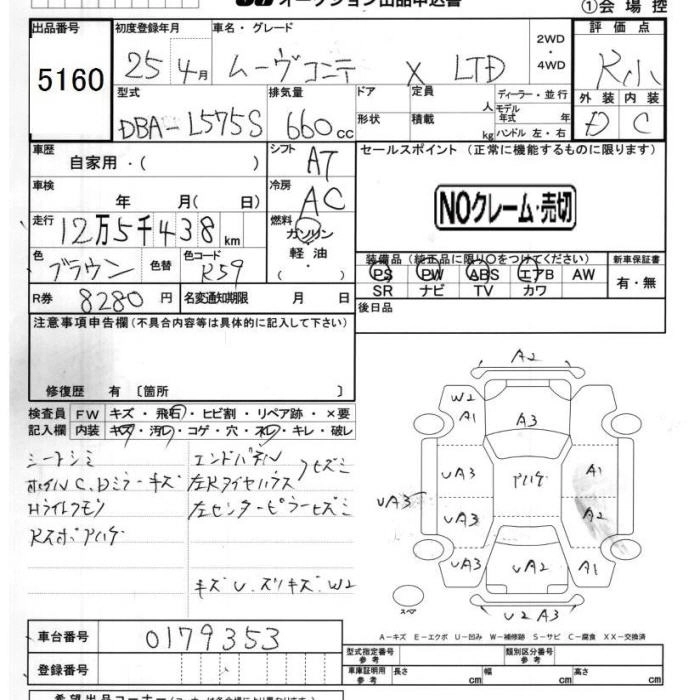 オークション出品申込書
①会場控
出品番号 初度登録年月 車名・グレード 2WD・4WD 評価点
5160 25 4月 ムーヴコンテ X LTD R小
型式 排気量 ドア 定員 人 ディーラー・並行 外装 内装
DBA-L575S 660cc 形状 積載 kg モデル年式 年 ハンドル 左・右 D C
車歴 自家用・( ) シフト AT セールスポイント (正常に機能するものに限ります)
車検 年 月( 日) 冷房 AC NOクレーム・売切
走行 12万5千438km 燃料 ガソリン 軽油 ( ・ )
装備品(純正品に限り○をつけてください) 新車保証書
色 ブラウン 色替 色コード R59
PS PW ABS エアB AW 有・無
SR ナビ TV カワ
R券 8280円 名変通知期限 月 日 後日品
注意事項申告欄(不具合内容等は具体的に記入して下さい)
修復歴 有 〔箇所 〕
検査員 FW キズ・飛石・ヒビ割・リペア跡・×要
記入欄 内装 キズ・汚レ・コゲ・穴・スレ・キレ・破レ
シートシミ エンドパネル
ホイルC、Dミラーキズ
Hライトクモリ
左センターピラーヒズミ
キズU、ズリキズ、W2
A2
W2
A1
A3
UA3
A1
UA3
UA3
A2
UA3
UA2
A1
スペア
U2 A3
A-キズ E-エクボ U-凹み W-補修跡 S-サビ C-腐食 XX-交換済
車台番号 0179353
型式指定番号 参考 類別区分番号 参考
登録番号 車庫証明用 参考 長さ cm 幅 cm 高さ cm
希望出品コーナー